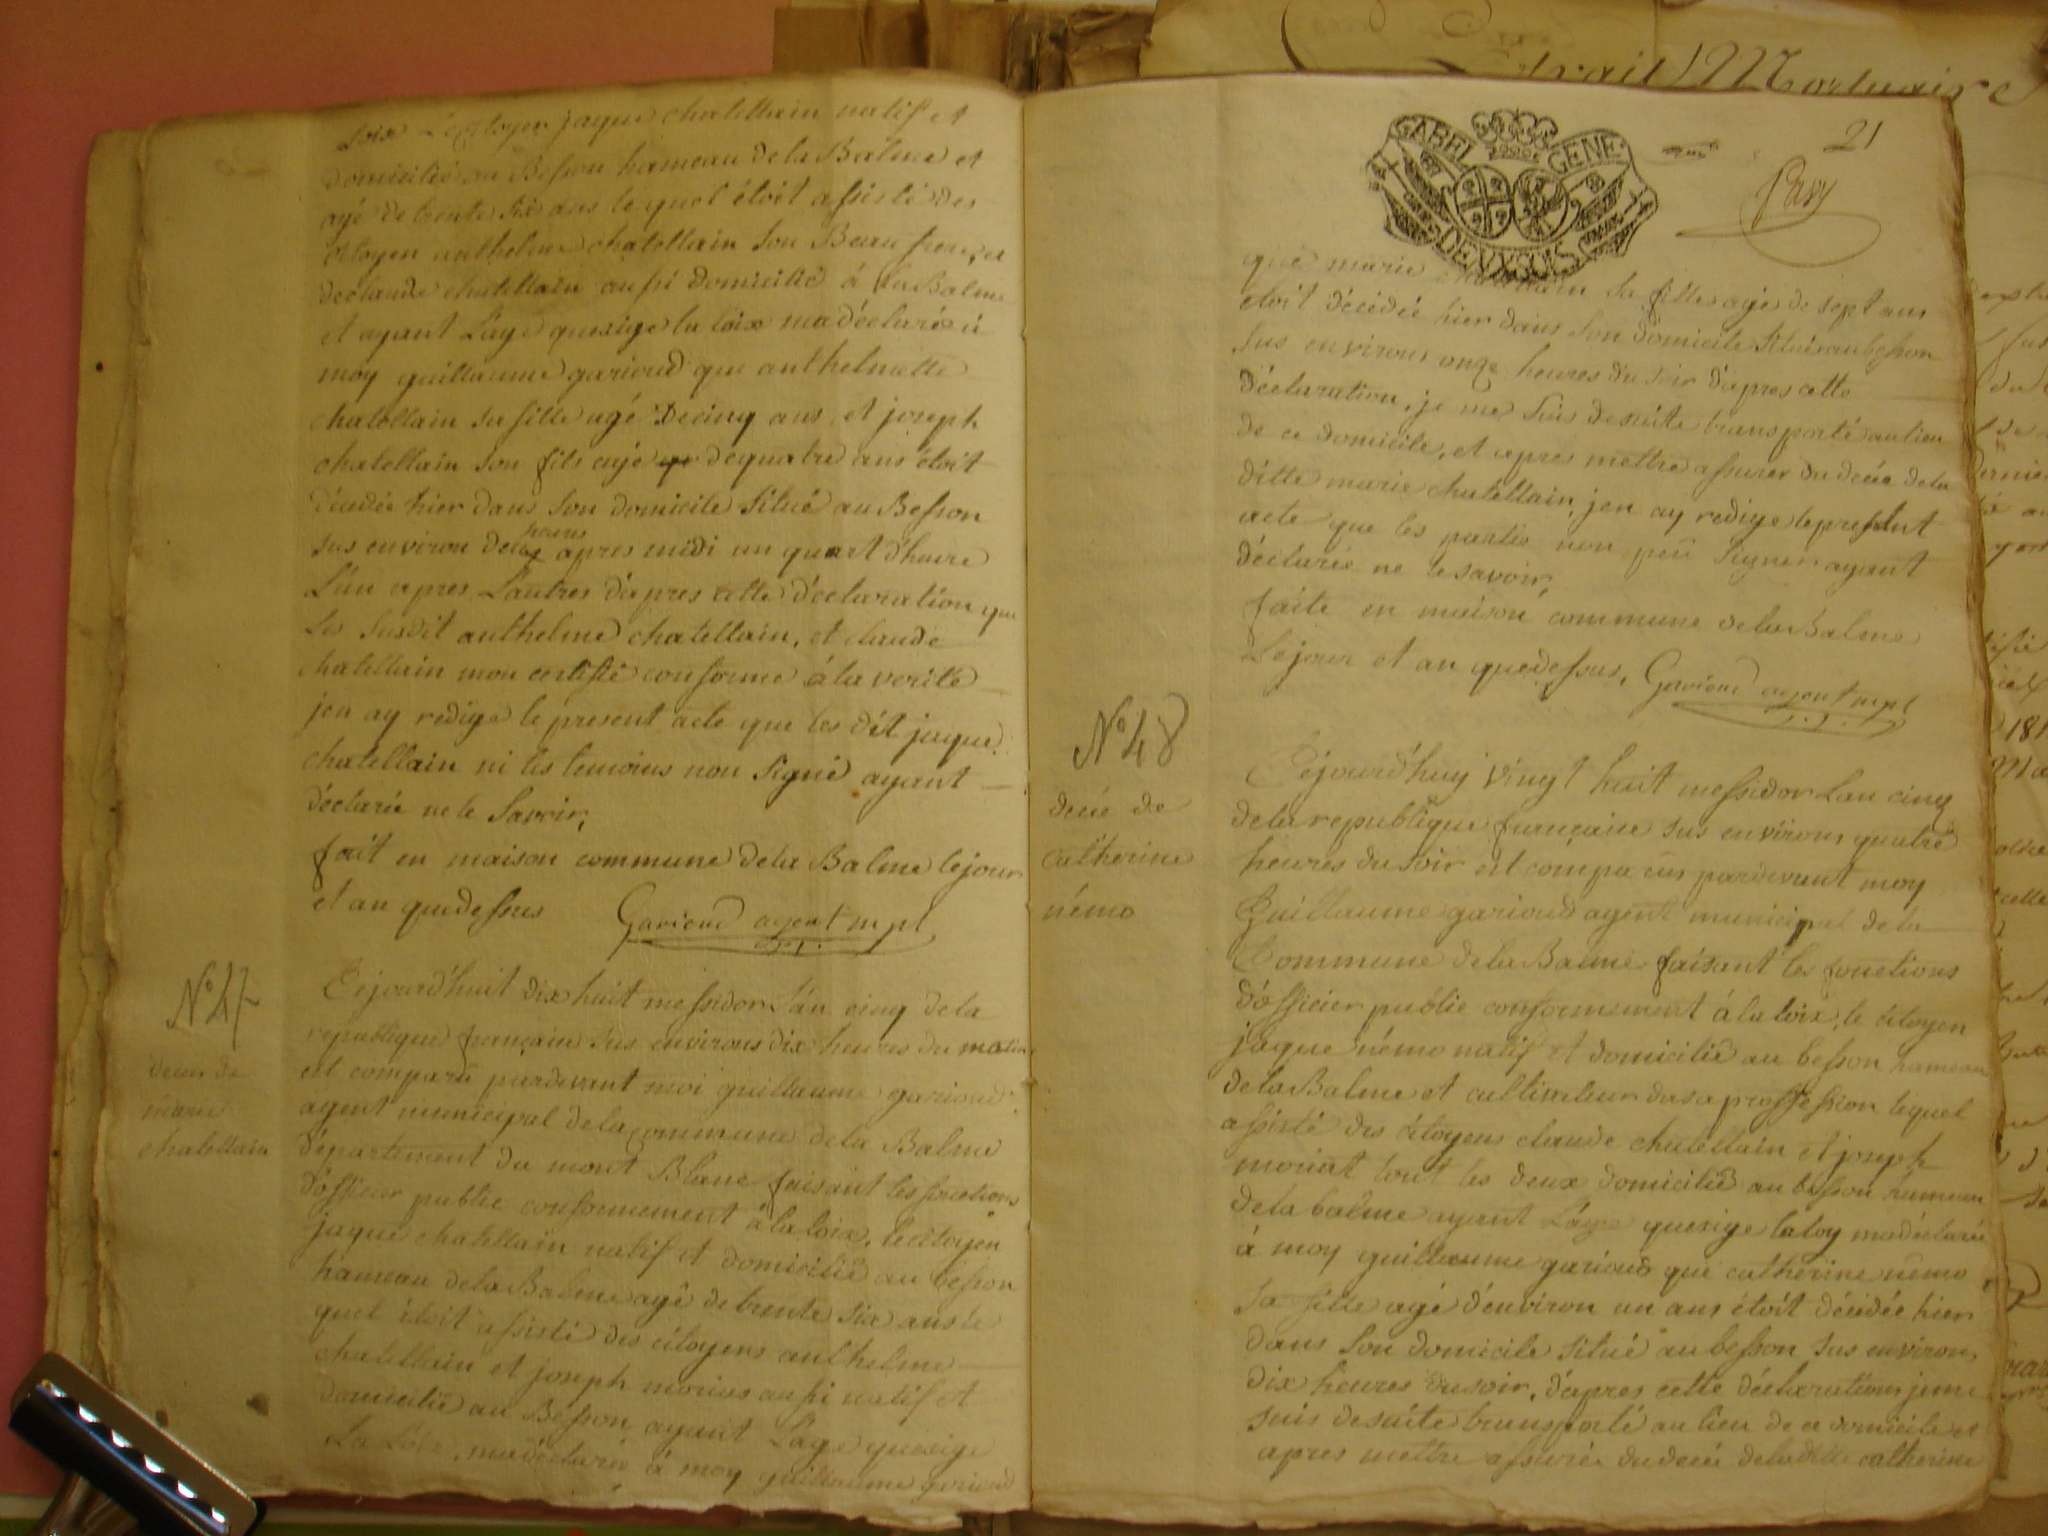 loix Le Citoyen jaque chatellain natif et
domicilié au Besson hameau de la Balme et
agé de trente six ans le quel étoit assisté des
citoyen anthelme chatellain son Beau frere, et
de claude chatellain aussi domicilié à la Balme
et ayant L'age quexige la loix ma déclaré à
moy guillaume garioud que anthelmette
chatellain sa fille agé De cinq ans et joseph
chatellain son fils agé de quatre ans étoit
décédée hier dans son domicile situé au Besson
sus environ deux heures apres midi un quart d'heure
L'un apres L'autres d'apres cette déclaration que
Les susdit anthelme chatellain, et claude
chatellain mon certifié conforme à la verité
jen ay redige le present acte que les dit jaque
chatellain ni les temoins non signé ayant
déclaré ne le savoir,
fait en maison commune de la Balme le jour
et an que dessus Garioud agent mpl
N° 47
deces de
marie
chatellain
Cejourd'huit dix huit messidor l'an cinq de la
republique française sus environs dix heures du matin
est comparu pardevant moi guillaume garioud
agent municipal de la commune de la Balme
département du mont Blanc faisant les fonctions
d'officier public conformement à la loix, le citoyen
jaque chatellain natif et domicilié au besson
hameau de la Balme agé de trente six ans le
quel étoit assisté des citoyens anthelme
chatellain et joseph aussi natif et
domicilié au Besson ayant L'age quexige
La Loix, ma déclaré à moy guillaume garioud
21
GABEL GENE
DEUX SOLS
que marie chatellain sa fille agé de sept ans
etoit décédée hier dans son domicile situé au besson
sus environs onze heures du soir d'apres cette
déclaration, je me suis de suite transporté au lieu
de ce domicile, et apres mettre assurer du décée de la
ditte marie chatellain, jen ay redige le present
acte que les partis non peu signer ayant
déclarée ne le savoir,
faite en maison commune de la Balme
Le jour et an que dessus, Garioud agent mpl
N° 48
decée de
catherine
némo
Cejourd'huy vingt huit messidor Lan cinq
de la republique française sus environs quatre
heures du soir est comparus pardevant moy
Guillaume garioud agent municipal de la
Commune de la Balme faisant les fonctions
d'officier public conformement à la loix, le citoyen
jaque némo natif et domicilié au besson hameau
de la Balme et cultivateur de sa proffession lequel
assisté des citoyens claude chatellain et joseph
tout les deux domicilié au besson hameau
de la balme ayant L'age quexige la loy ma déclaré
à moy guillaume garioud que catherine némo
sa fille agé d'environ un ans étoit décédée hier
dans son domicile situé au besson sus environ
dix heures du soir, d'apres cette déclarations je me
suis de suite transporté au lieu de ce domicile et
apres mettre assurée du decée de la ditte catherine